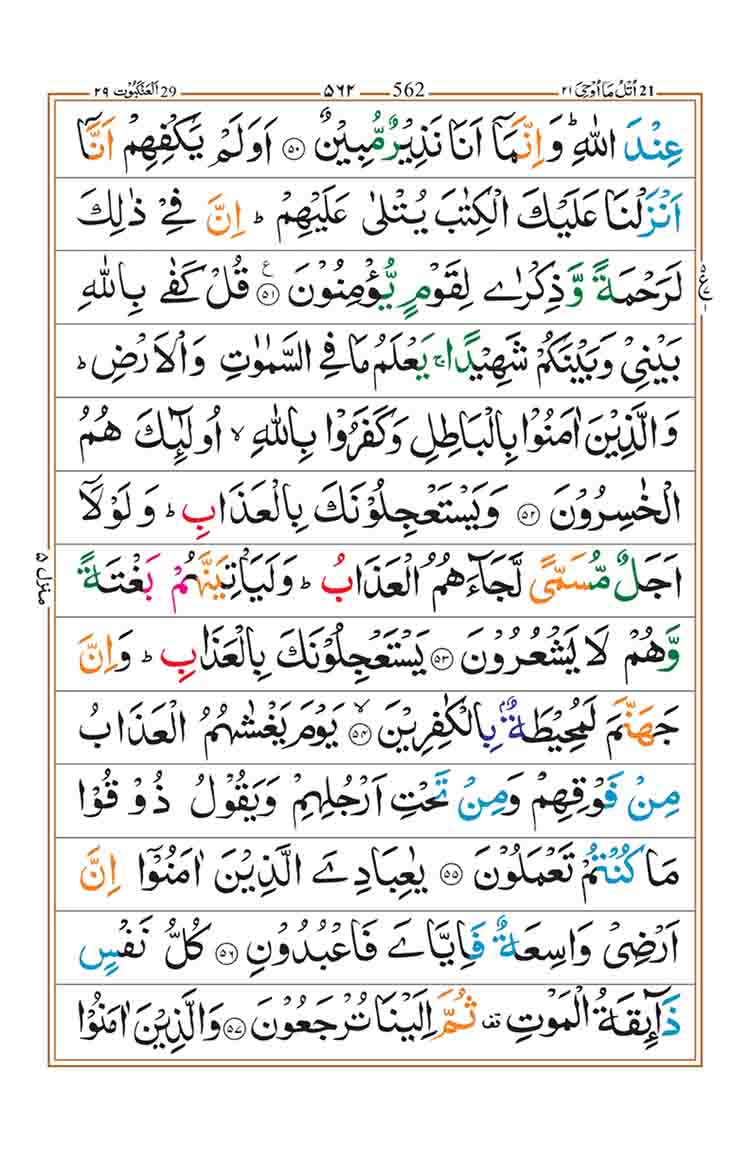 ٢٩ اَلْعَنْكَبُوْت 29 ۵۶۲ 562 ٢١ اُتْلُ مَا اُوْحِىَ 21
عِنْدَ اللّٰهِ ؕ وَاِنَّمَاۤ اَنَا نَذِيْرٌ مُّبِيْنٌ ﴿۵۰﴾ اَوَلَمْ يَكْفِهِمْ اَنَّاۤ
اَنْزَلْنَا عَلَيْكَ الْكِتٰبَ يُتْلٰى عَلَيْهِمْ ؕ اِنَّ فِىْ ذٰلِكَ
لَرَحْمَةً وَّذِكْرٰى لِقَوْمٍ يُّؤْمِنُوْنَ ﴿۵۱﴾ ع قُلْ كَفٰى بِاللّٰهِ
بَيْنِىْ وَبَيْنَكُمْ شَهِيْدًا ۚ يَعْلَمُ مَا فِى السَّمٰوٰتِ وَالْاَرْضِ ؕ
وَالَّذِيْنَ اٰمَنُوْا بِالْبَاطِلِ وَكَفَرُوْا بِاللّٰهِ ۙ اُولٰٓئِكَ هُمُ
الْخٰسِرُوْنَ ﴿۵۲﴾ وَيَسْتَعْجِلُوْنَكَ بِالْعَذَابِ ؕ وَلَوْلَاۤ
اَجَلٌ مُّسَمًّى لَّجَآءَهُمُ الْعَذَابُ ؕ وَلَيَاْتِيَنَّهُمْ بَغْتَةً
وَّهُمْ لَا يَشْعُرُوْنَ ﴿۵۳﴾ يَسْتَعْجِلُوْنَكَ بِالْعَذَابِ ؕ وَاِنَّ
جَهَنَّمَ لَمُحِيْطَةٌۢ بِالْكٰفِرِيْنَ ۙ ﴿۵۴﴾ يَوْمَ يَغْشٰىهُمُ الْعَذَابُ
مِنْ فَوْقِهِمْ وَمِنْ تَحْتِ اَرْجُلِهِمْ وَيَقُوْلُ ذُوْقُوْا
مَا كُنْتُمْ تَعْمَلُوْنَ ﴿۵۵﴾ يٰعِبَادِىَ الَّذِيْنَ اٰمَنُوْۤا اِنَّ
اَرْضِىْ وَاسِعَةٌ فَاِيَّاىَ فَاعْبُدُوْنِ ﴿۵۶﴾ كُلُّ نَفْسٍ
ذَآئِقَةُ الْمَوْتِ قف ثُمَّ اِلَيْنَا تُرْجَعُوْنَ ﴿۵۷﴾ وَالَّذِيْنَ اٰمَنُوْا
منزل ۵